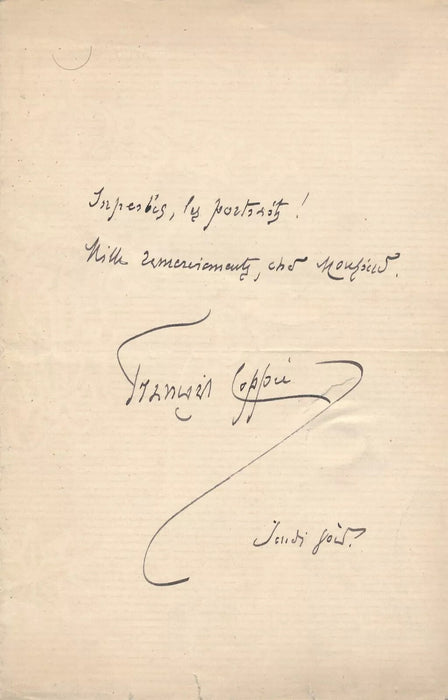 Superbes, les portraits !
Mille remerciements, cher Monsieur.
François Coppée
Jeudi soir.